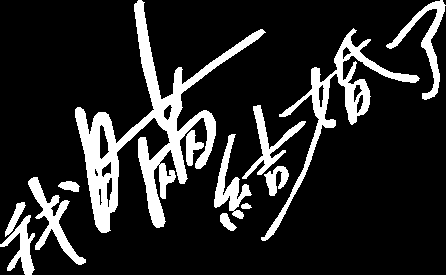 我瞞結婚了